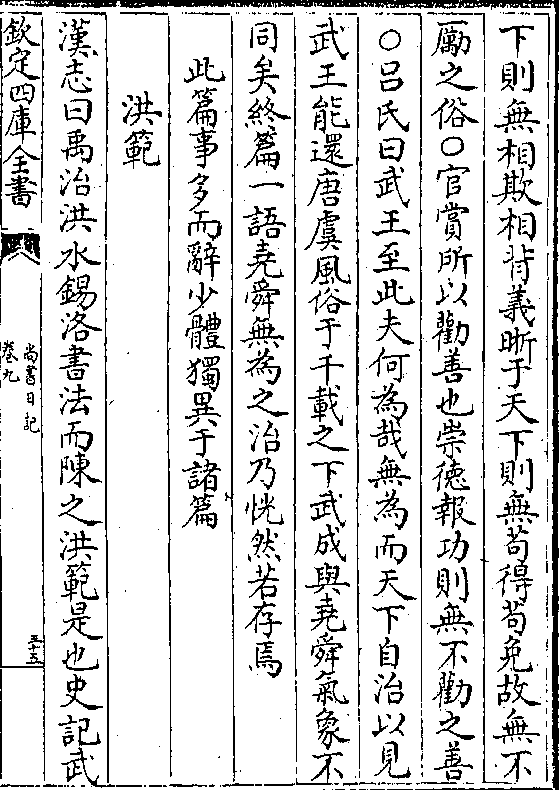 下則無相欺相背義晰于天下則無苟得苟免故無不
勵之俗○官賞所以勸善也崇德報功則無不勸之善
○吕氏曰武王至此夫何為哉無為而天下自治以見
武王能還唐虞風俗于千載之下武成與堯舜氣象不
同矣終篇一語堯舜無為之治乃恍然若存焉
此篇事多而辭少體獨異于諸篇
洪範
漢志曰禹治洪水錫洛書法而陳之洪範是也史記武
欽定四庫全書
尚書日記
卷九
三十五